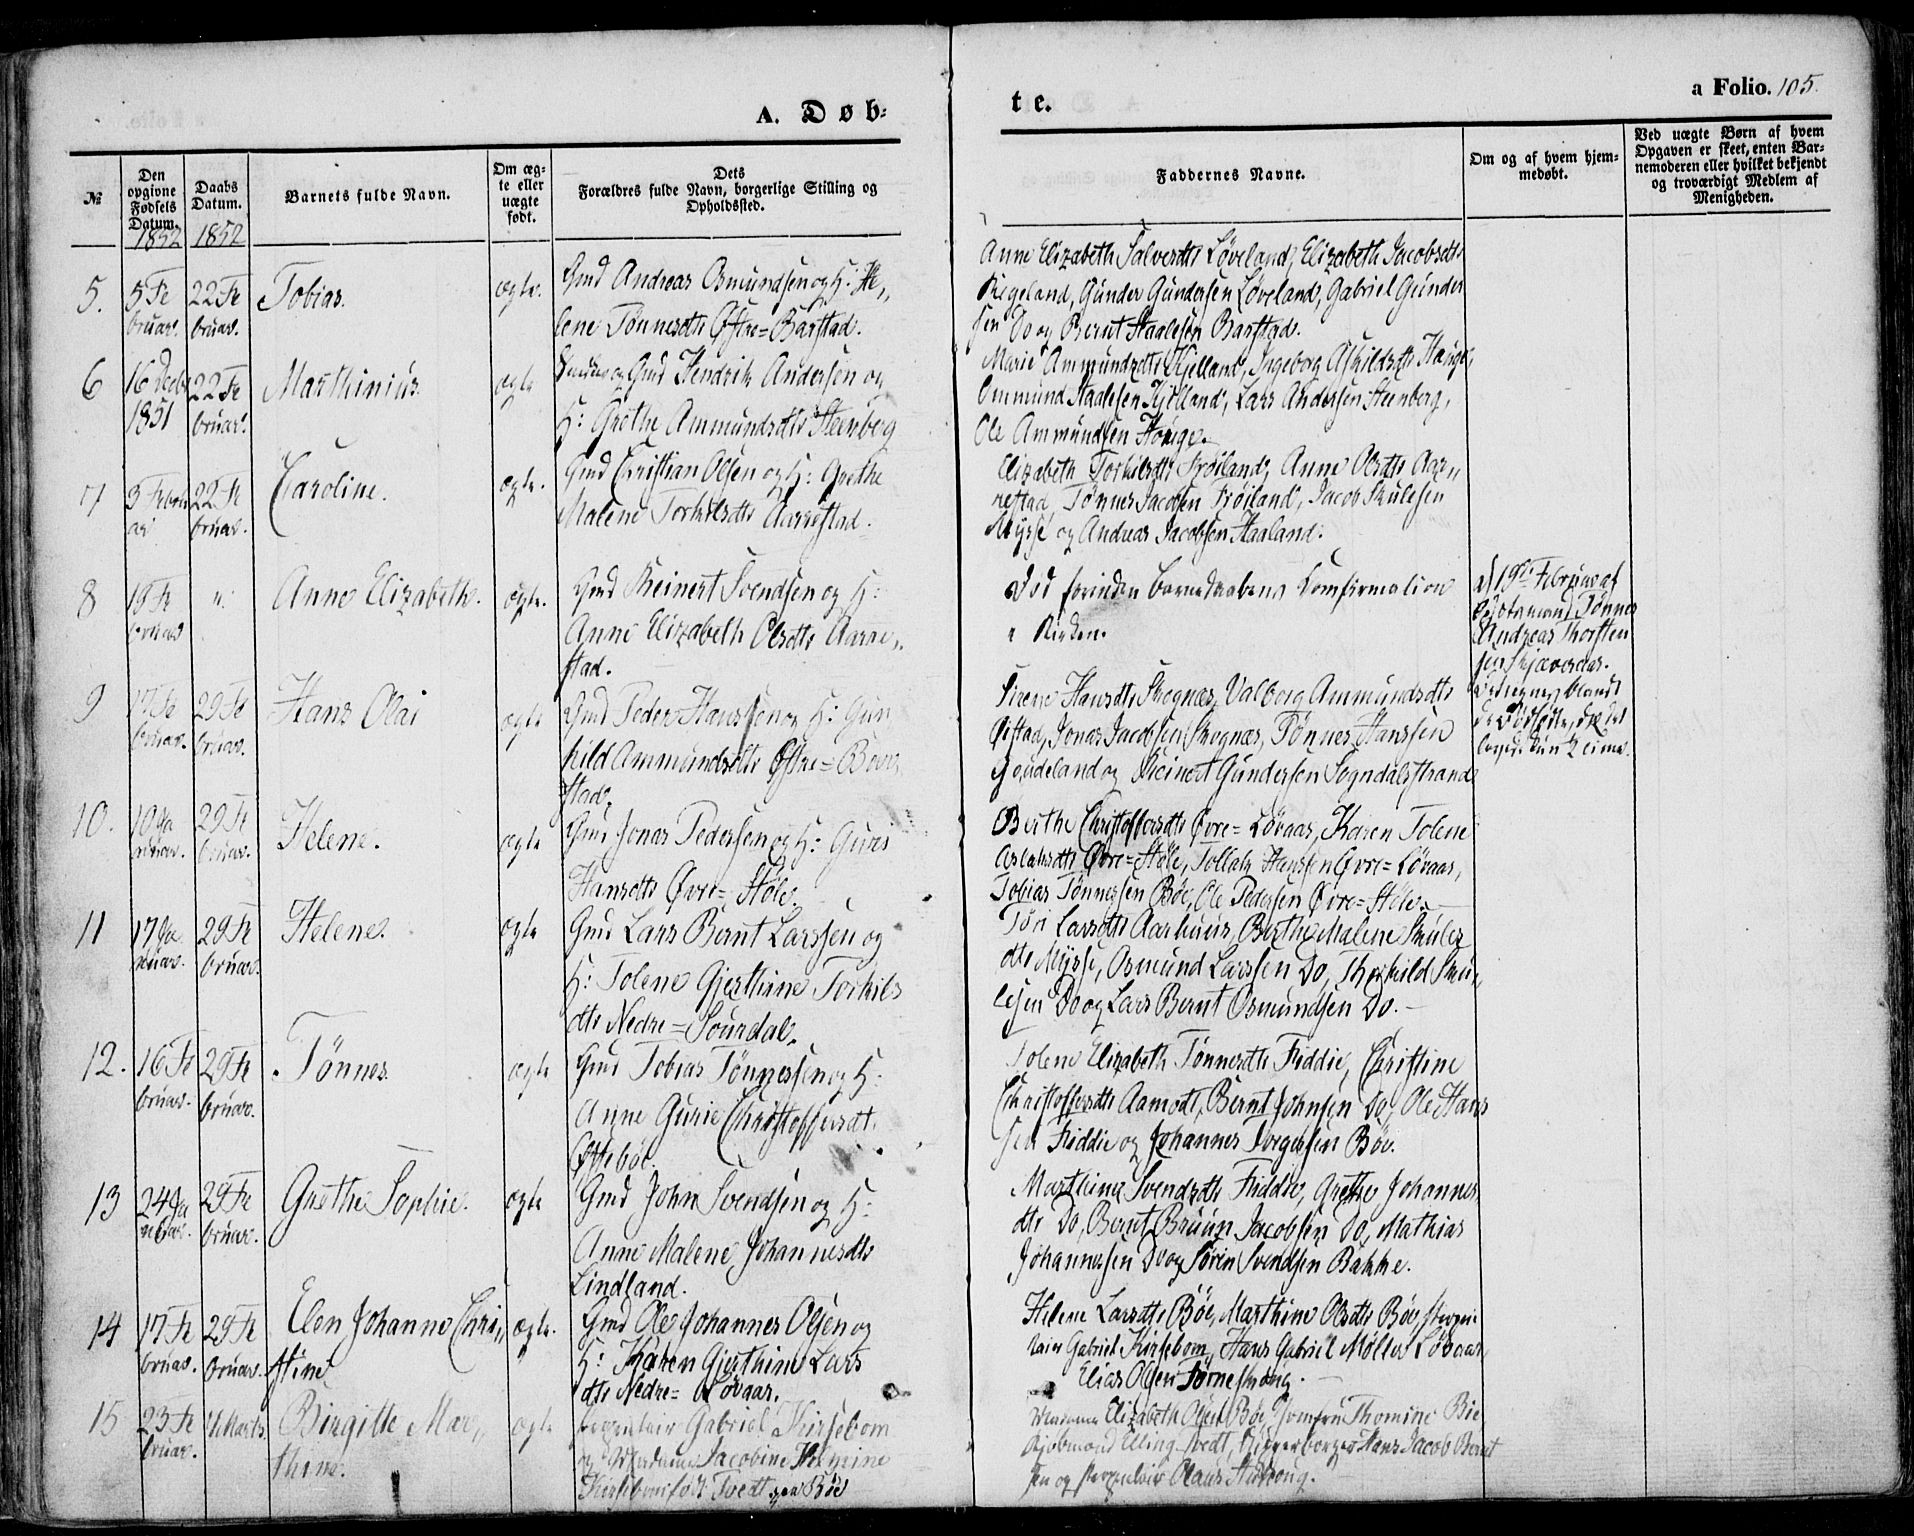 A. Døb-
te.
a Folio. 105.
№
Den opgivne Fødsels Datum.
Daabs Datum.
Barnets fulde Navn.
Om ægte eller uægte født.
Dets
Forældres fulde Navn, borgerlige Stilling og
Opholdssted.
Faddernes Navne.
Om og af hvem hjem-
medøbt.
Ved uægte Børn af hvem
Opgaven er skeet, enten Bar-
nemoderen eller hvilket bekjendt
og troværdigt Medlem af
Menigheden.
1852 1852
5. 5 Fe 22 Fe Tobias. ægte. Gmd Andreas Osmundsen og H: He„
bruar. bruar. lene Tønnesdtr Østre=Barstad.
Anne Elizabeth Salvesdtr Løveland, Elizabeth Jacobsdtr
Regeland, Gunder Gundersen Løveland, Gabriel Gunder
sen Do og Bernt Staalesen Barstad.
6 16 Decbr 22 Fe Marthinius. ægte Gmd Hendrik Andersen og
1851 bruar. H: Grethe Ammundsdtr Steenberg
Marie Ammundsdtr Kjelland, Ingeborg Askildsdtr Hauge,
Ommund Staalesen Kjelland, Lars Andersen Steenberg,
Ole Ammundsen Hauge.
7 3 Febru 22 Fe Caroline. ægte. Gmd Christian Olsen og H: Grethe
ar. bruar. Malene Torkildsdtr Aarrestad.
Elizabeth Torkildsdtr Frøiland, Anne Olsdtr Aar„
restad, Tønnes Jacobsen Frøiland, Jacob Skulesen
Mysse og Andreas Jacobsen Haaland.
8 18 Fe " Anne Elizabeth. ægte. Gmd Reinert Svendsen og H:
bruar Anne Elizabeth Olsdtr Aarre„
stad.
Død forinden Barnedaabens Confirmation
i Kirken.
af 19de Februar af
Tønnes
Andreas Thorsten
sen Skjæveraas.
9 17 Fe 29 Fe Hans Olai ægte Gmd Peder Hanssen og H: Gun
bruar. bruar. hild Ammundsdtr Østre=Bow
stad.
Sirene Hansdtr Skognæs, Valborg Ammundsdtr
Øistad, Jonas Jacobsen Skognæs, Tønnes Hanssen
Goudeland og Reinert Gundersen Sogndalstrand
10. 10 Ja 29 Fe Helene. ægte Gmd Jonas Pedersen og H: Guris
nuar. bruar. Hansdtr Øvre=Støle.
Berthe Christoffersdtr Øvre=Løvaas, Karen Tolene
Aslaksdtr Øvre=Støle, Tollak Hanssen Øvre=Løvaas,
Tobias Tønnessen Bøe, Ole Pedersen Øvre=Støle.
11 17 Ja 29 Fe Helene. ægte Gmd Lars Bernt Larssen og
nuar. bruar. H: Tolene Gjerthine Torkils
dtr Nedre=Sourdal.
Tøri Larsdtr Aarhuus, Berthe Malene Skules
dtr Mysse, Osmund Larssen Do, Thorkild Sku„
lesen Do og Lars Bernt Osmundsen Do.
12. 16 Fe 29 Fe Tønnes. ægte Gmd Tobias Tønnessen og H:
bruar. bruar. Anne Gurie Christoffersdt.
Østebøe.
Tolene Elizabeth Tønnesdtr Fiddie, Christine
Christoffersdtr Aamodt, Bernt Johnsen Do, Ole Hans
sen Fiddie og Johannes Torgersen Bøe.
13 24 Ja 29 Fe Grethe Sophie. ægte Gmd John Svendsen og H:
nuar. bruar. Anne Malene Johannesdtr
Lindland.
Marthine Svendsdtr Fiddie, Grethe Johannes
dtr Do, Bernt Bruun Jacobsen Do, Mathias
Johannessen Do og Søren Svendsen Bakke.
14 17 Fe 29 Fe Elen Johanne Chri„ ægte. Gmd Ole Johannes Olsen og
bruar. bruar. stine H: Karen Gjerthine Lars
dtr Nedre=Løvaas.
Helene Larsdtr Bøe, Marthine Olsdtr Bøe,
Gabriel Kirsebom, Hans Gabriel Møller Løvaas,
Elias Olsen Tørresmoug.
15 23 Fe 4 Marts Birgitte Mar„ ægte Gabriel Kirsebom
bruar. thine. og Jacobine Thomine
Kirsebom født Tvedt paa Bøe
Madame Elizabeth Olsen Bøe, Jomfru Thomine Bie
Kjøbmand Elling Tvedt, Hans Jacob Bernt
sen og Olaus